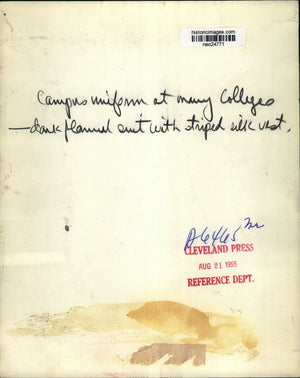 historicimages.com
nec24771
Campus uniform at many Colleges
—dark flannel suit with striped silk vest.
CLEVELAND PRESS
AUG 21 1955
REFERENCE DEPT.